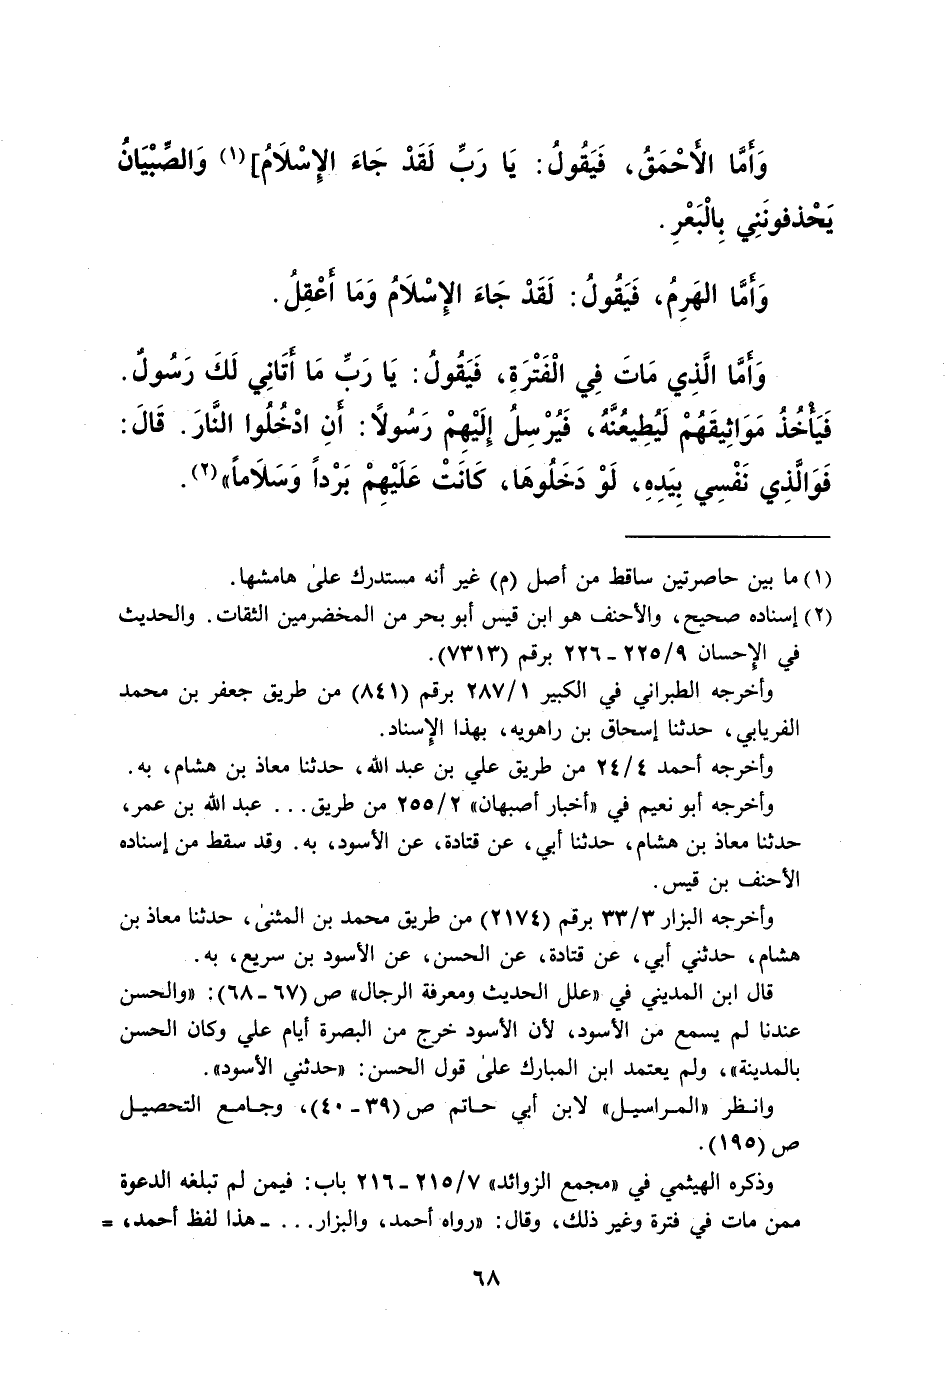 وَأَمَّا الأَحْمَقُ، فَيَقُولُ: يَا رَبِّ لَقَدْ جَاءَ الإِسْلَامُ](١) وَالصِّبْيَانُ
يَحْذفونَنِي بِالْبَعْرِ.
وَأَمَّا الهَرِمُ، فَيَقُولُ: لَقَدْ جَاءَ الإِسْلَامُ وَمَا أَعْقِلُ.
وَأَمَّا الَّذِي مَاتَ فِي الْفَتْرَةِ، فَيَقُولُ: يَا رَبِّ مَا أَتَانِي لَكَ رَسُولٌ.
فَيَأْخُذُ مَوَاثِيقَهُمْ لَيُطِيعُنَّهُ، فَيُرْسِلُ إِلَيْهِمْ رَسُولاً: أَنِ ادْخُلُوا النَّارَ. قَالَ:
فَوَالَّذِي نَفْسِي بِيَدِهِ، لَوْ دَخَلُوهَا، كَانَتْ عَلَيْهِمْ بَرْداً وَسَلَاماً»(٢).
(١) ما بين حاصرتين ساقط من أصل (م) غير أنه مستدرك علىٰ هامشها.
(٢) إسناده صحيح، والأحنف هو ابن قيس أبو بحر من المخضرمين الثقات. والحديث
في الإحسان ٢٢٥/٩ - ٢٢٦ برقم (٧٣١٣).
وأخرجه الطبراني في الكبير ٢٨٧/١ برقم (٨٤١) من طريق جعفر بن محمد
الفريابي، حدثنا إسحاق بن راهويه، بهذا الإسناد.
وأخرجه أحمد ٢٤/٤ من طريق علي بن عبد الله، حدثنا معاذ بن هشام، به.
وأخرجه أبو نعيم في «أخبار أصبهان» ٢٥٥/٢ من طريق... عبد الله بن عمر،
حدثنا معاذ بن هشام، حدثنا أبي، عن قتادة، عن الأسود، به. وقد سقط من إسناده
الأحنف بن قيس.
وأخرجه البزار ٣٣/٣ برقم (٢١٧٤) من طريق محمد بن المثنىٰ، حدثنا معاذ بن
هشام، حدثني أبي، عن قتادة، عن الحسن، عن الأسود بن سريع، به.
قال ابن المديني في «علل الحديث ومعرفة الرجال» ص (٦٧ - ٦٨): «والحسن
عندنا لم يسمع من الأسود، لأن الأسود خرج من البصرة أيام علي وكان الحسن
بالمدينة»، ولم يعتمد ابن المبارك علىٰ قول الحسن: «حدثني الأسود».
وانظر «المراسيل» لابن أبي حاتم ص (٣٩ - ٤٠)، وجامع التحصيل
ص (١٩٥).
وذكره الهيثمي في «مجمع الزوائد» ٢١٥/٧ - ٢١٦ باب: فيمن لم تبلغه الدعوة
ممن مات في فترة وغير ذلك، وقال: «رواه أحمد، والبزار... - هذا لفظ أحمد، =
٦٨